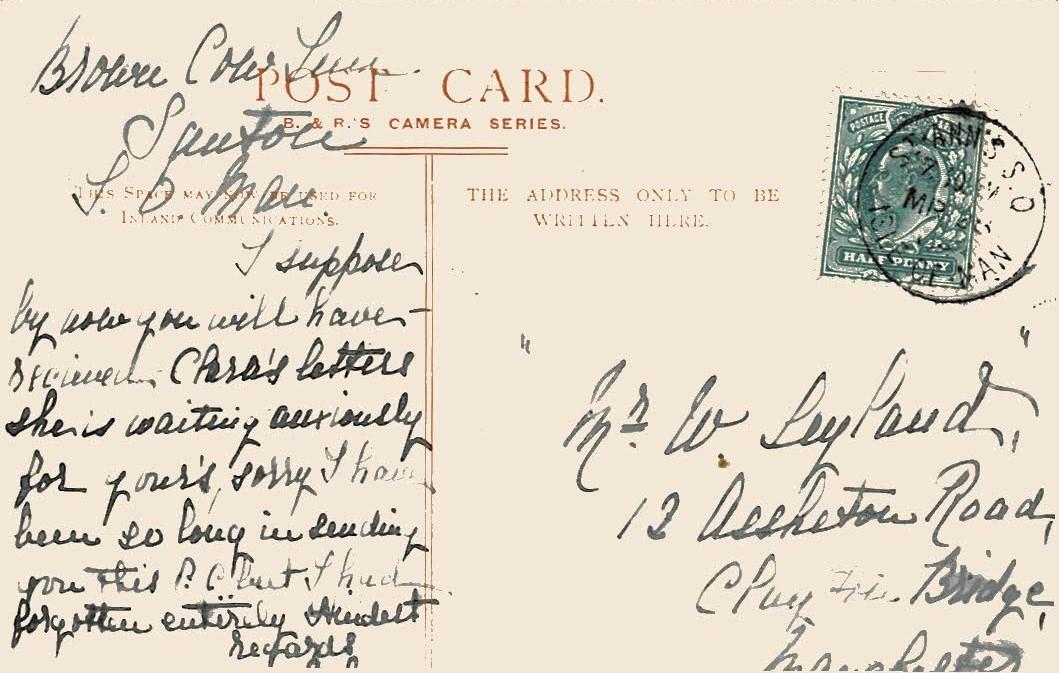 Brown Cow Inn
Santon
I. O. Man.
POST CARD.
B. & R.'S CAMERA SERIES.
THIS SPACE MAY NOW BE USED FOR
INLAND COMMUNICATIONS.
THE ADDRESS ONLY TO BE
WRITTEN HERE.
I suppose
by now you will have
recieved Clara's letters
she is waiting anxiously
for your's, sorry I have
been so long in sending
you this P. C. but I had
forgotten entirely Kindest
regards
POSTAGE
HALFPENNY
ANN'S S.O
MR
OF MAN
" "
Mr. W Leyland,
12 Assheton Road,
Clayton Bridge,
Manchester